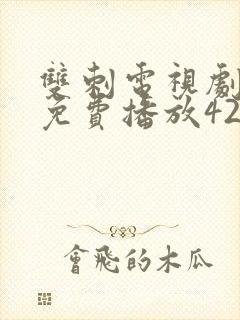 雙刺電視劇
免費播放42
會飛的木瓜